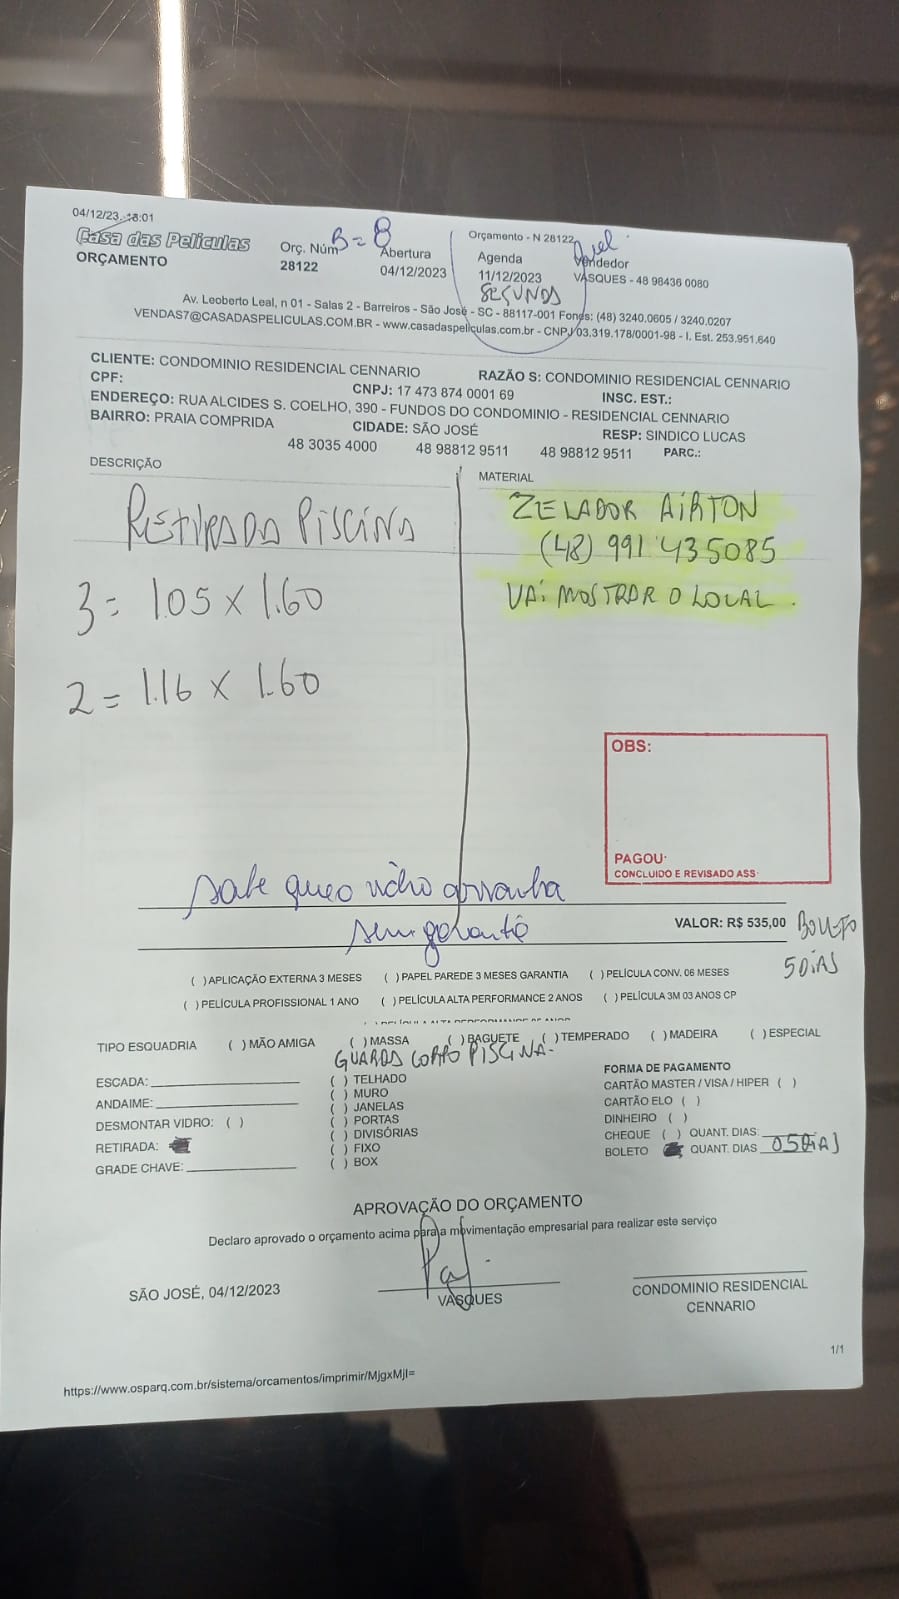 04/12/23, 18:01
Casa das Películas
ORÇAMENTO
Orç. Núm
28122
B = 8
Abertura
04/12/2023
Orçamento - N 28122
Agenda
11/12/2023
SEGUNDA
Vendedor
VASQUES - 48 98436 0080
Av. Leoberto Leal, n 01 - Salas 2 - Barreiros - São José - SC - 88117-001 Fones: (48) 3240.0605 / 3240.0207
VENDAS7@CASADASPELICULAS.COM.BR - www.casadaspeliculas.com.br - CNPJ 03.319.178/0001-98 - I. Est. 253.951.640
CLIENTE: CONDOMINIO RESIDENCIAL CENNARIO
RAZÃO S: CONDOMINIO RESIDENCIAL CENNARIO
CPF:
CNPJ: 17 473 874 0001 69
INSC. EST.:
ENDEREÇO: RUA ALCIDES S. COELHO, 390 - FUNDOS DO CONDOMINIO - RESIDENCIAL CENNARIO
BAIRRO: PRAIA COMPRIDA
CIDADE: SÃO JOSÉ
RESP: SINDICO LUCAS
48 3035 4000
48 98812 9511
48 98812 9511
PARC.:
DESCRIÇÃO
RETIRADA PISCINA
3 = 1.05 X 1.60
2 = 1.16 X 1.60
MATERIAL
ZELADOR AIRTON
(48) 991435085
VAI MOSTRAR O LOCAL.
OBS:
PAGOU:
CONCLUIDO E REVISADO ASS:
sabe que o vidro arranha
sem garantia
VALOR: R$ 535,00
BOLETO
5 DIAS
( ) APLICAÇÃO EXTERNA 3 MESES ( ) PAPEL PAREDE 3 MESES GARANTIA ( ) PELÍCULA CONV. 06 MESES
( ) PELÍCULA PROFISSIONAL 1 ANO ( ) PELÍCULA ALTA PERFORMANCE 2 ANOS ( ) PELÍCULA 3M 03 ANOS CP
TIPO ESQUADRIA ( ) MÃO AMIGA ( ) MASSA ( ) BAGUETE ( ) TEMPERADO ( ) MADEIRA ( ) ESPECIAL
GUARDA CORPO PISCINA.
ESCADA:
ANDAIME:
DESMONTAR VIDRO: ( )
RETIRADA:
GRADE CHAVE:
( ) TELHADO
( ) MURO
( ) JANELAS
( ) PORTAS
( ) DIVISÓRIAS
( ) FIXO
( ) BOX
FORMA DE PAGAMENTO
CARTÃO MASTER / VISA / HIPER ( )
CARTÃO ELO ( )
DINHEIRO ( )
CHEQUE ( ) QUANT. DIAS:
BOLETO QUANT. DIAS 05 DIAS
APROVAÇÃO DO ORÇAMENTO
Declaro aprovado o orçamento acima para a movimentação empresarial para realizar este serviço
SÃO JOSÉ, 04/12/2023
VASQUES
CONDOMINIO RESIDENCIAL
CENNARIO
1/1
https://www.osparq.com.br/sistema/orcamentos/imprimir/MjgxMjI=